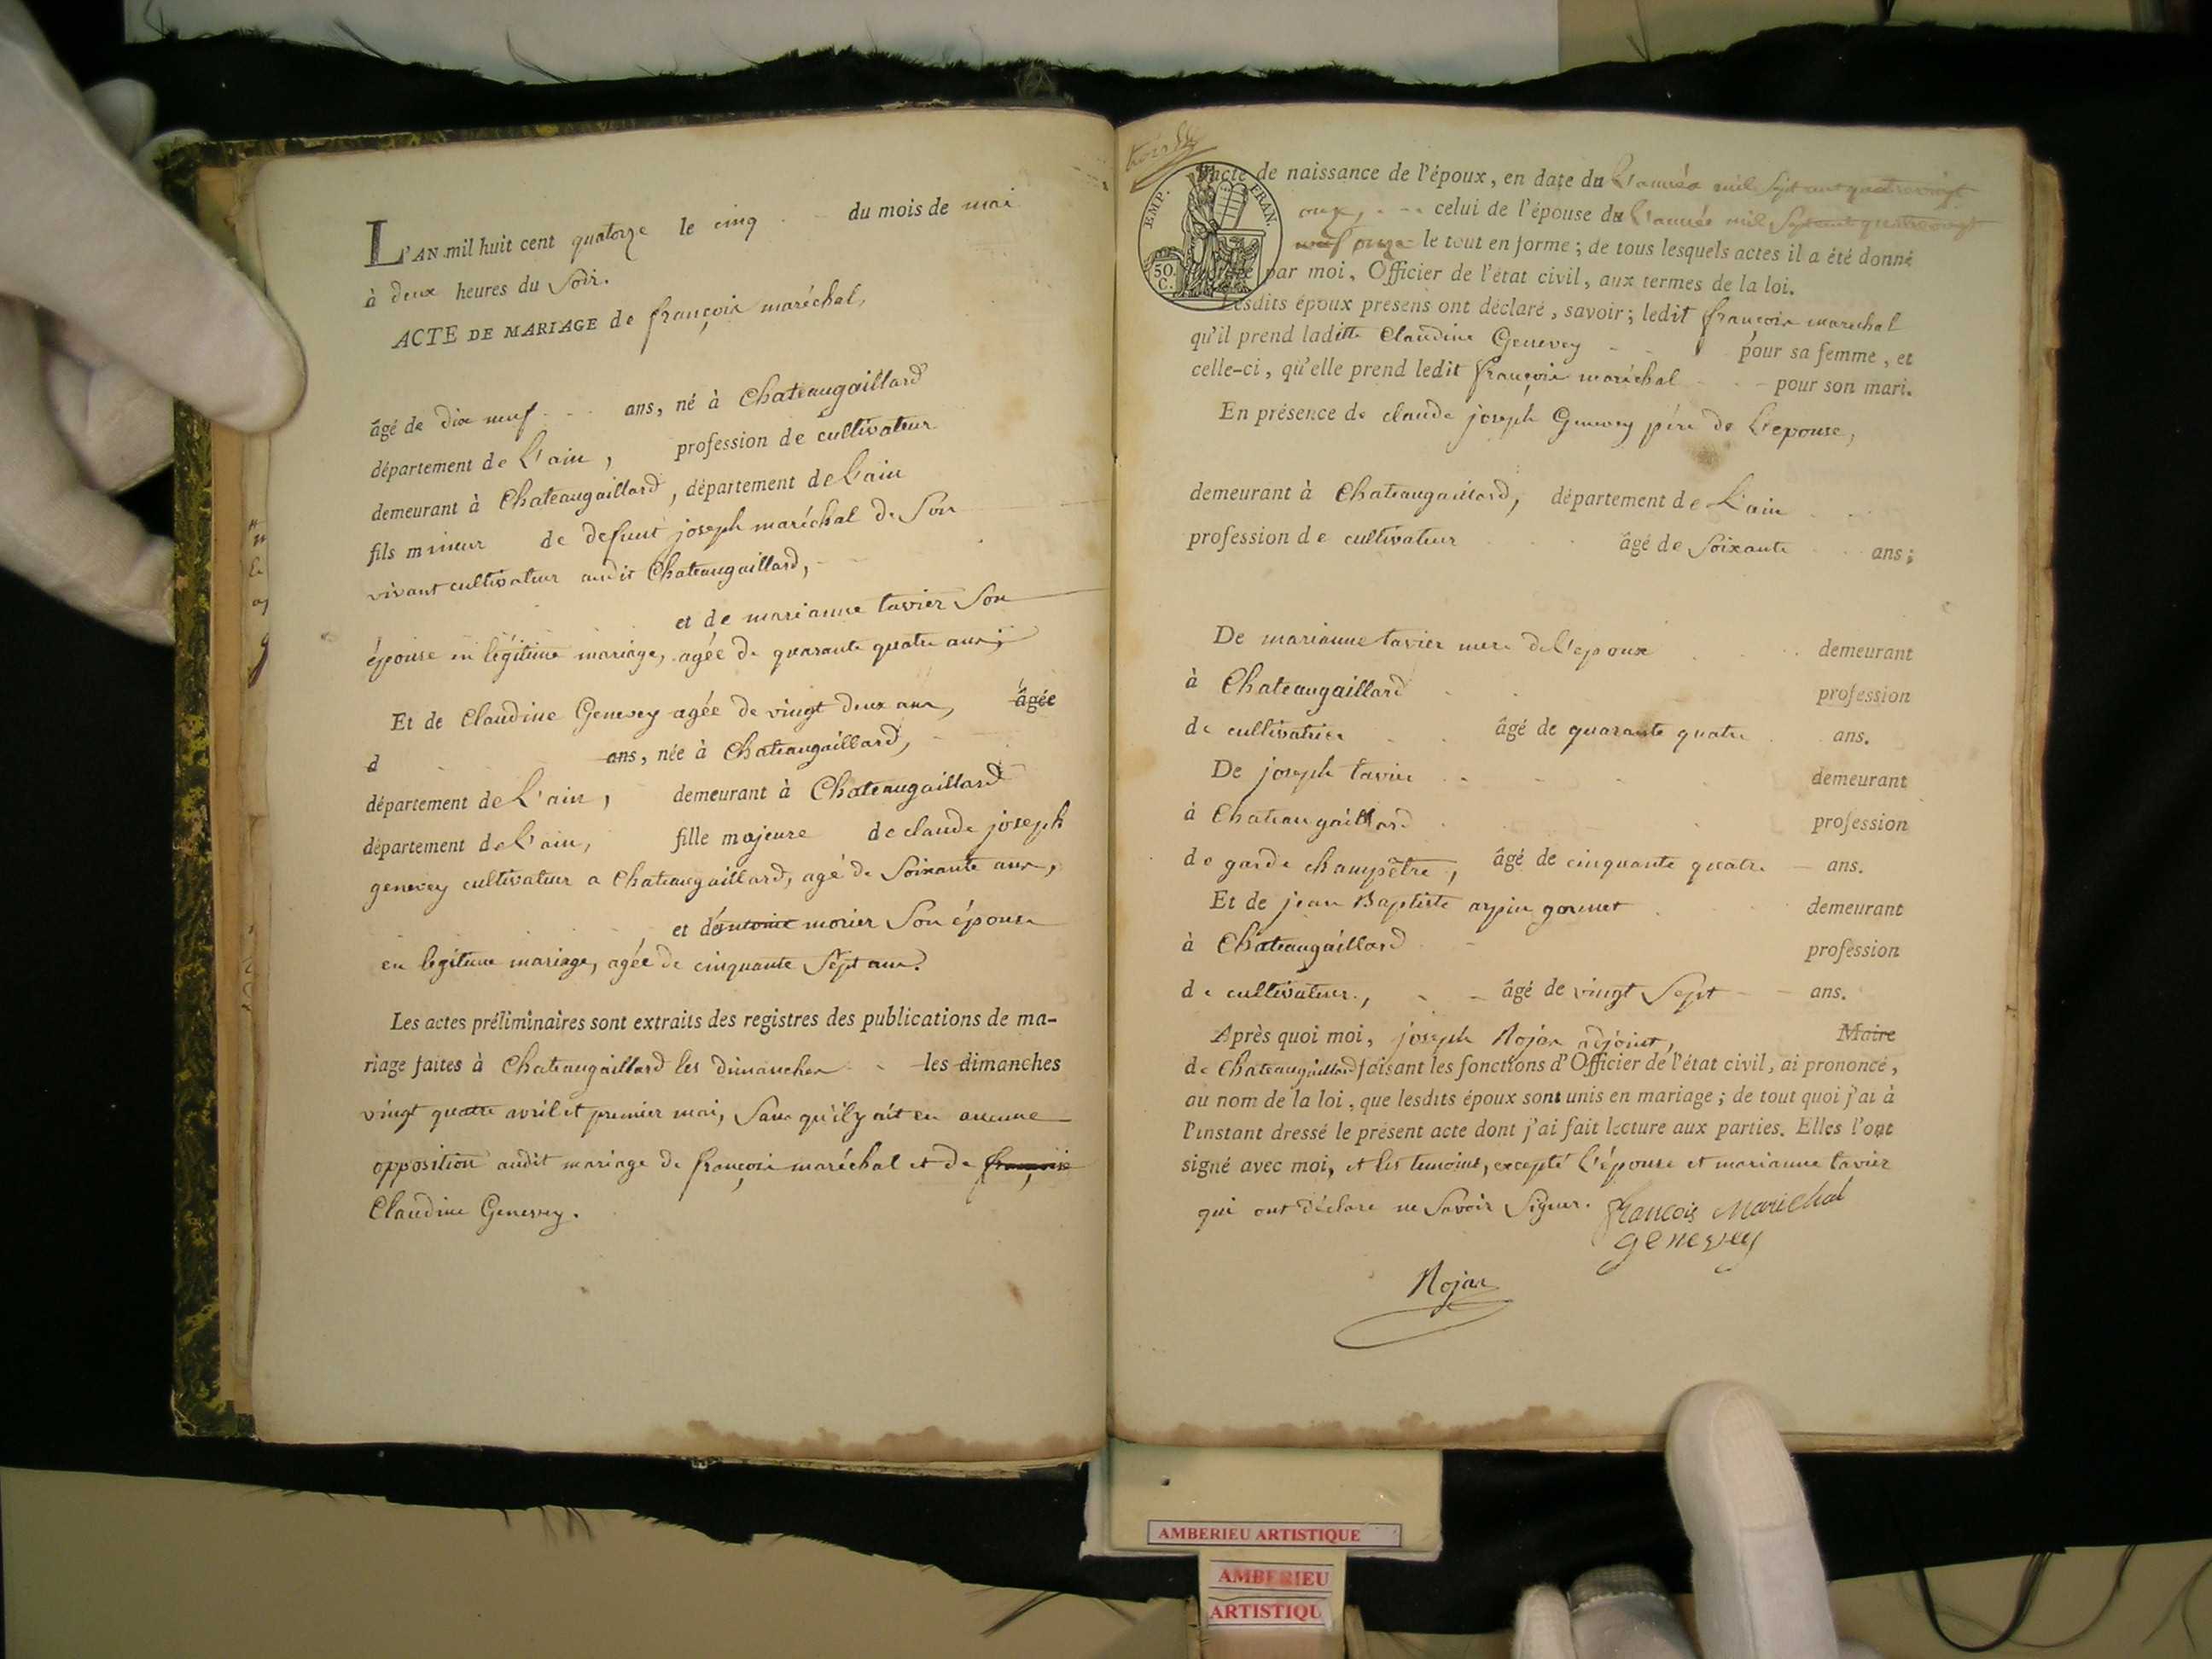 L'AN mil huit cent quatorze le cinq du mois de mai
à deux heures du Soir.
ACTE DE MARIAGE de françois maréchal,
âgé de dix neuf ans, né à Chateaugaillard
département de L'ain, profession de cultivateur
demeurant à Chateaugaillard, département de L'ain
fils mineur de defunt joseph maréchal de Son
vivant cultivateur audit Chateaugaillard,
et de marianne tavier Son
épouse en légitime mariage, agée de quarante quatre ans;
Et de Claudine Genevey agée de vingt deux ans, âgée
d ans, née à Chateaugaillard,
département de L'ain, demeurant à Chateaugaillard
département de L'ain, fille majeure de claude joseph
genevey cultivateur a Chateaugaillard, agé de Soixante ans,
et d morier Son épouse
en legitime mariage, agée de cinquante Sept ans.
Les actes préliminaires sont extraits des registres des publications de ma-
riage faites à Chateaugaillard les dimanches les dimanches
vingt quatre avril et premier mai, Sans qu'il y ait eu aucune
opposition audit mariage de françois maréchal et de françoise
Claudine Genevey.
TIMP. FRAN.
50 C.
l'acte de naissance de l'époux, en date du L'année mil Sept cent quatrevingt
onze, celui de l'épouse du L'année mil Sept cent quatrevingt
onze le tout en forme; de tous lesquels actes il a été donné
par moi, Officier de l'état civil, aux termes de la loi.
Lesdits époux présens ont déclaré, savoir; ledit françois marechal
qu'il prend ladite Claudine Genevey pour sa femme, et
celle-ci, qu'elle prend ledit françois maréchal pour son mari.
En présence de claude joseph Genevey père de L'epouse,
demeurant à Chateaugaillard, département de L'ain
profession de cultivateur âgé de Soixante ans;
De marianne tavier mere de L'epoux demeurant
à Chateaugaillard profession
de cultivatrice âgé de quarante quatre ans.
De joseph tavier demeurant
à Chateaugaillard profession
de garde champêtre, âgé de cinquante quatre ans.
Et de jean Baptiste arpin gonnet demeurant
à Chateaugaillard profession
de cultivateur, âgé de vingt Sept ans.
Après quoi moi, joseph Nojan adjoint, Maire
de Chateaugaillard faisant les fonctions d'Officier de l'état civil, ai prononcé,
au nom de la loi, que lesdits époux sont unis en mariage; de tout quoi j'ai à
l'instant dressé le présent acte dont j'ai fait lecture aux parties. Elles l'ont
signé avec moi, et les temoins, excepté L'épouse et marianne tavier
qui ont déclare ne Savoir Signer. francois Marechal
genevey
Nojan
AMBERIEU ARTISTIQUE
AMBERIEU
ARTISTIQU